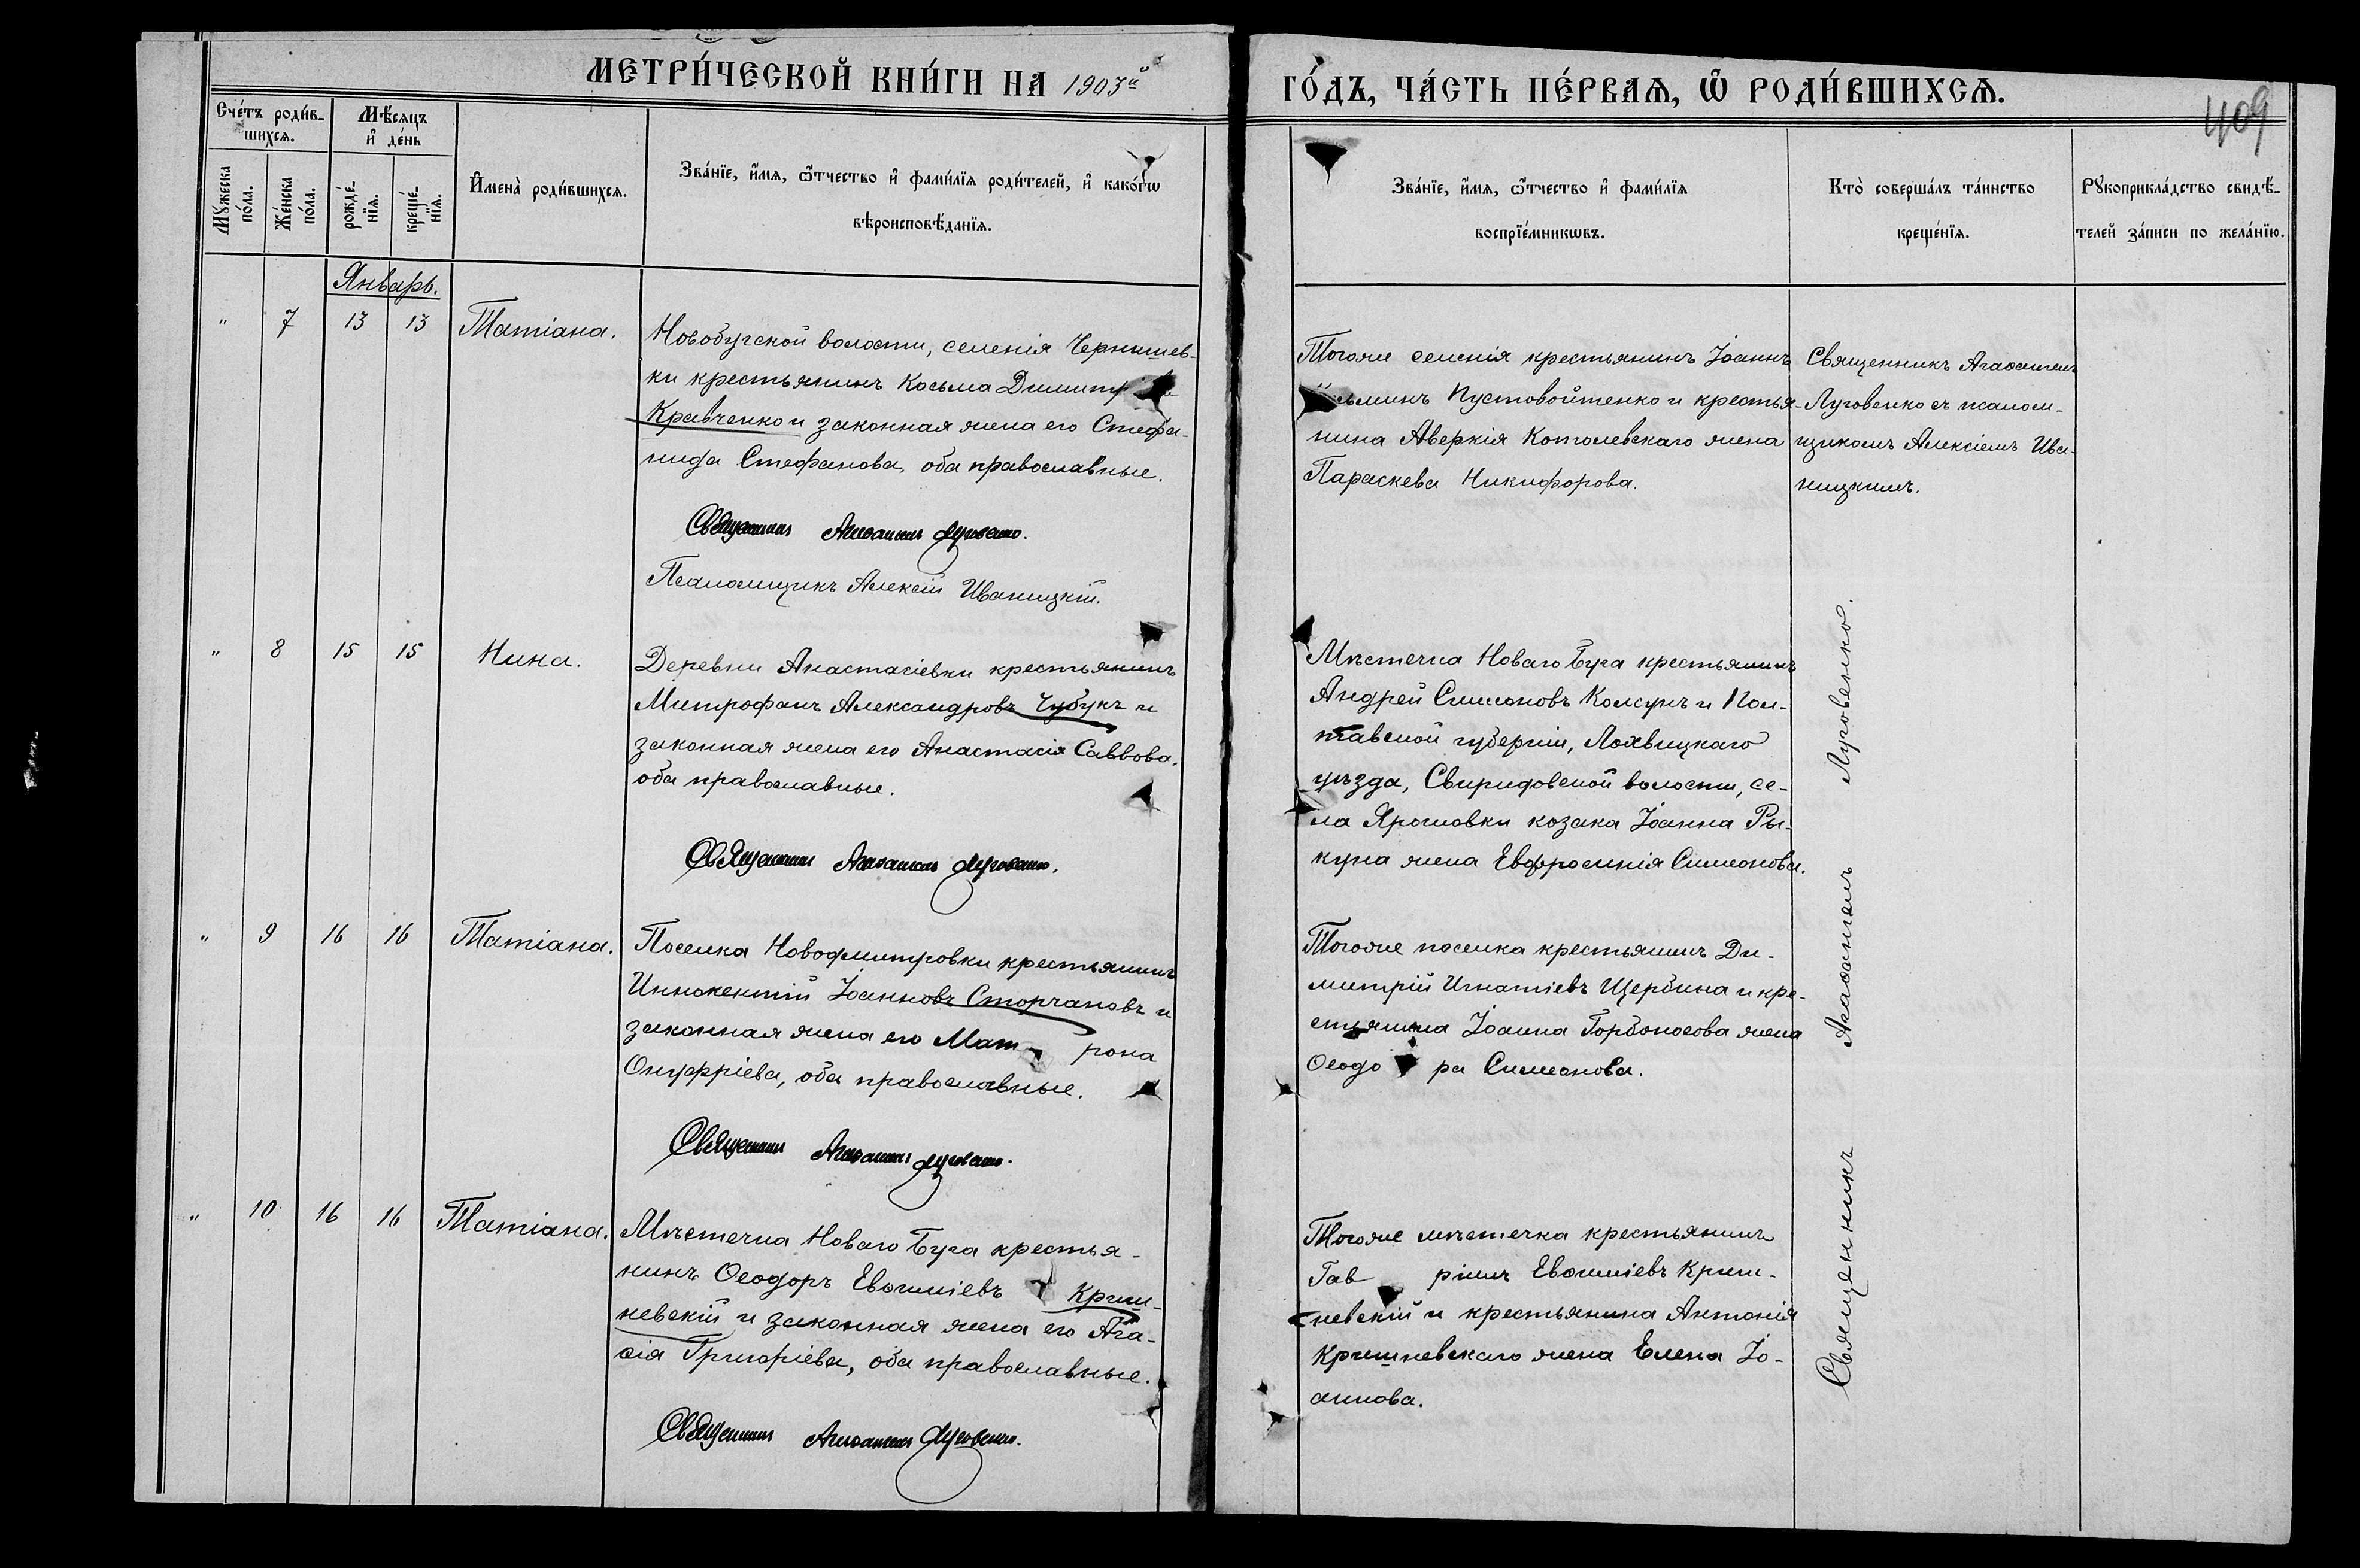 МЕТРИ́ЧЕСКОЙ КНИ́ГИ НА 1903й
ГО́ДЪ, ЧА́СТЬ ПЕ́РВАѦ, Ѿ РОДИ́ВШИХСѦ.
409
Сче́тъ роди́в-
шихсѧ.
Мѣ́сѧцъ
и҆ де́нь
И҆мена̀ роди́вшихсѧ.
Зва́нїе, и҆́мѧ, ѻ҆́тчество и҆ фами́лїѧ роди́телей, и҆ како́гѡ
вѣроисповѣ́данїѧ.
Мꙋ́жеска
по́ла.
Же́нска
по́ла.
рожде́-
нїѧ.
креще́-
нїѧ.
Зва́нїе, и҆́мѧ, ѻ҆́тчество и҆ фами́лїѧ
воспрїе́мникѡвъ.
Кто̀ соверша́лъ та́инство
креще́нїѧ.
Рꙋкоприкла́дство свидѣ́-
телей за́писи по жела́нїю.
Январь.
" 7 13 13 Татіана.
Новобугской волости, селенія Чернышев-
ки крестьянинъ Косьма Димитр
Кравченко и законная жена его Стефа-
нида Стефанова, оба православные.
Священникъ Агаѳангелъ Луговенко.
Псаломщикъ Алексій Иваницкій.
Тогоже селенія крестьянинъ Іоаннъ
зьминъ Пустовойтенко и крестья-
нина Аверкія Котолевскаго жена
Параскева Никифорова.
Священникъ Агаѳангелъ
Луговенко съ псалом-
щикомъ Алексіемъ Ива-
ницкимъ.
" 8 15 15 Нина.
Деревни Анастасіевки крестьянинъ
Митрофанъ Александровъ Чубукъ и
законная жена его Анастасія Саввова,
оба православные.
Священникъ Агаѳангелъ Луговенко.
Мѣстечка Новаго Буга крестьянинъ
Андрей Симеоновъ Колсунъ и Пол-
тавской губерніи, Лохвицкаго
уѣзда, Свиридовской волости, се-
ла Ярошовки козака Іоанна Ры-
куна жена Евфросинія Симеонова.
" 9 16 16 Татіана.
Поселка Новодмитровки крестьянинъ
Иннокентій Іоанновъ Сторчаповъ и
законная жена его Мат рона
Онуфріева, оба православные.
Священникъ Агаѳангелъ Луговенко.
Тогоже поселка крестьянинъ Ди-
митрій Игнатіевъ Щербина и кре-
стьянина Іоанна Горбоносова жена
Ѳеодо ра Симеонова.
" 10 16 16 Татіана.
Мѣстечка Новаго Буга крестья-
нинъ Ѳеодоръ Евѳиміевъ Криш-
невскій и законная жена его Ага-
ѳія Григоріева, оба православные.
Священникъ Агаѳангелъ Луговенко.
Тогоже мѣстечка крестьянинъ
Гав ріилъ Евѳиміевъ Криш-
невскій и крестьянина Антонія
Кришневскаго жена Елена Іо-
аннова.
Священникъ Агаѳангелъ Луговенко.